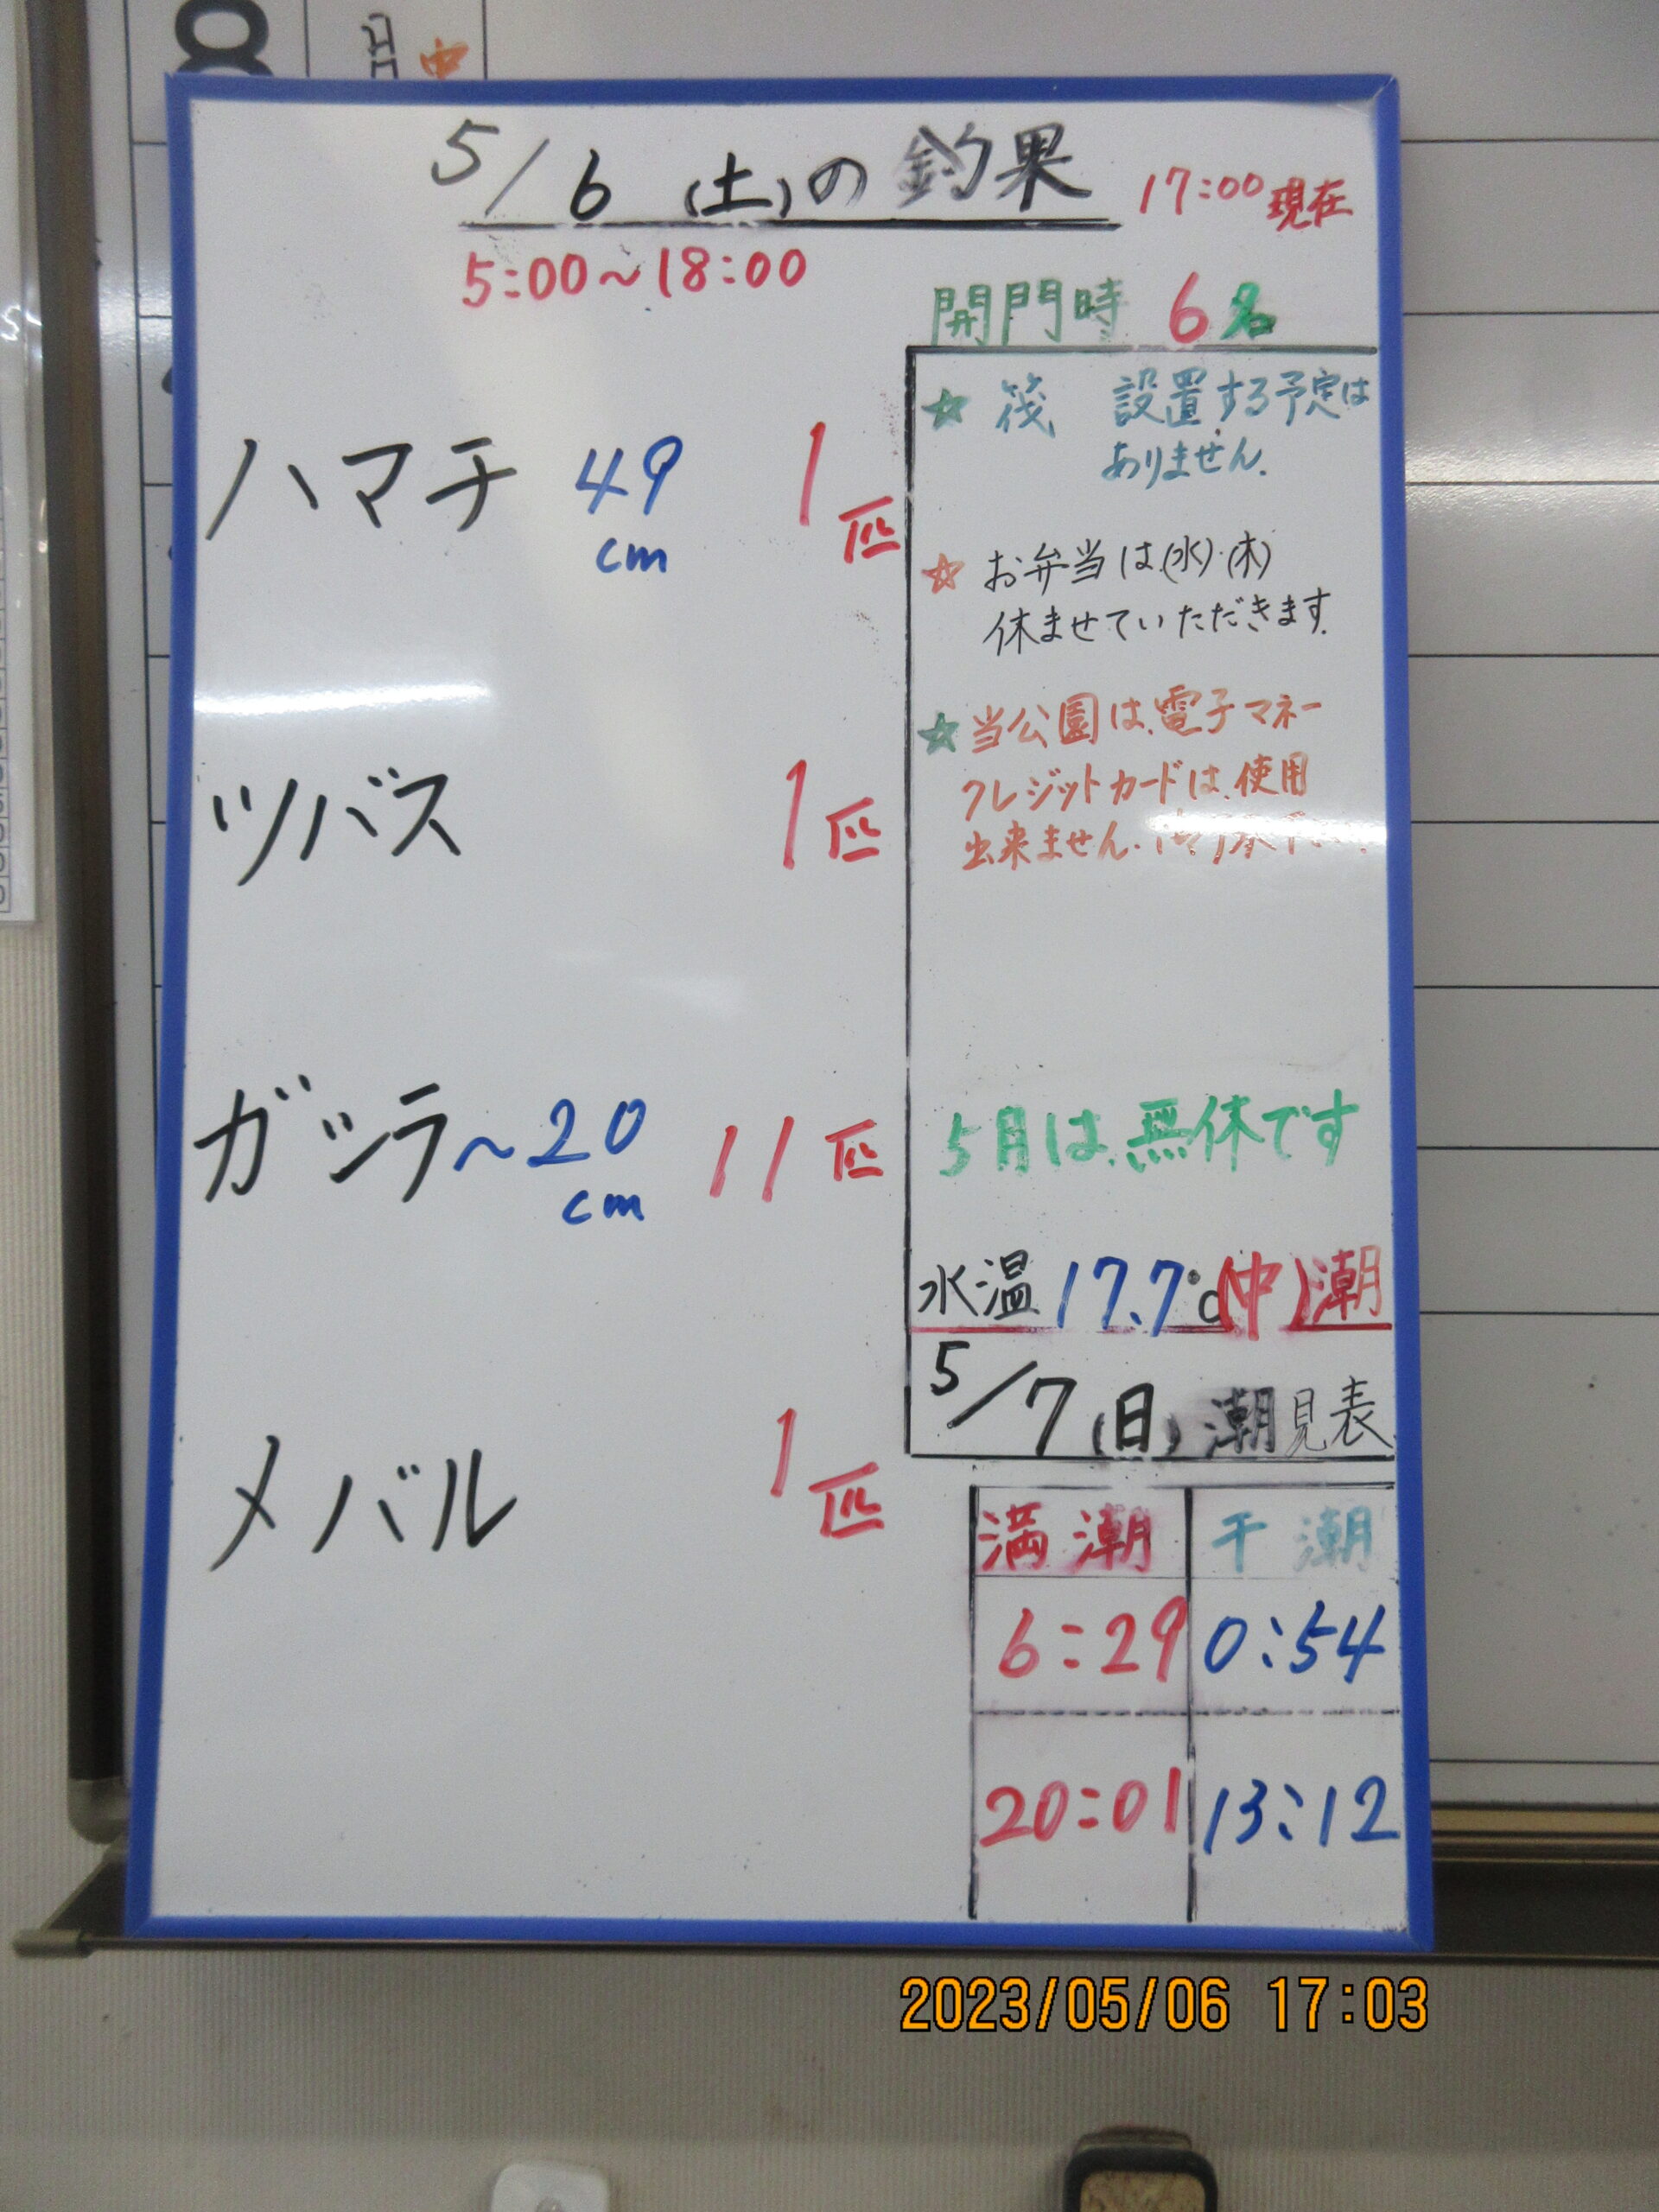 5/6 (土)の釣果 17:00現在
5:00~18:00
開門時 6名
ハマチ 49cm 1匹
ツバス 1匹
ガシラ~20cm 11匹
メバル 1匹
☆ 筏 設置する予定は
ありません.
☆ お弁当は(水)・(木)
休ませていただきます.
☆当公園は、電子マネー
クレジットカードは、使用
出来ません.
5月は、無休です
水温 17.7℃(中)潮
5/7(日)潮見表
満潮 干潮
6:29 0:54
20:01 13:12
2023/05/06 17:03
8 月 中